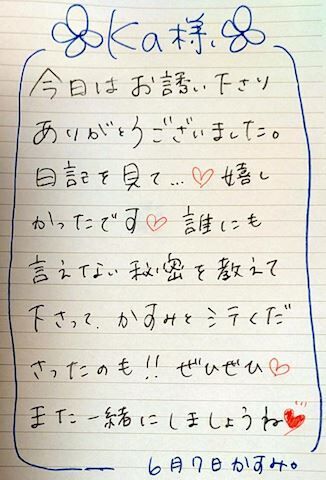 Ka様
今日はお誘い下さり
ありがとうございました。
日記を見て…♡嬉し
かったです♡ 誰にも
言えない秘密を教えて
下さって、かすみとシテくだ
さったのも!! ぜひぜひ♡
また一緒にしましょうね♥
6月7日かすみ。